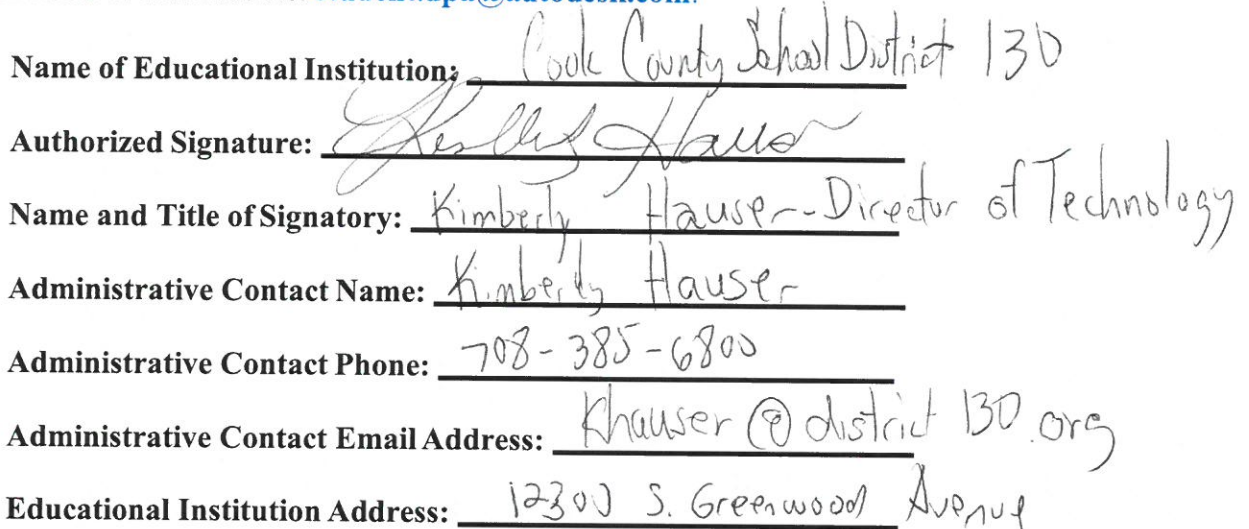 Name of Educational Institution: Cook County School District 130
Authorized Signature: Kimberly Hauser
Name and Title of Signatory: Kimberly Hauser--Director of Technology
Administrative Contact Name: Kimberly Hauser
Administrative Contact Phone: 708-385-6800
Administrative Contact Email Address: Khauser@district130.org
Educational Institution Address: 12300 S. Greenwood Avenue